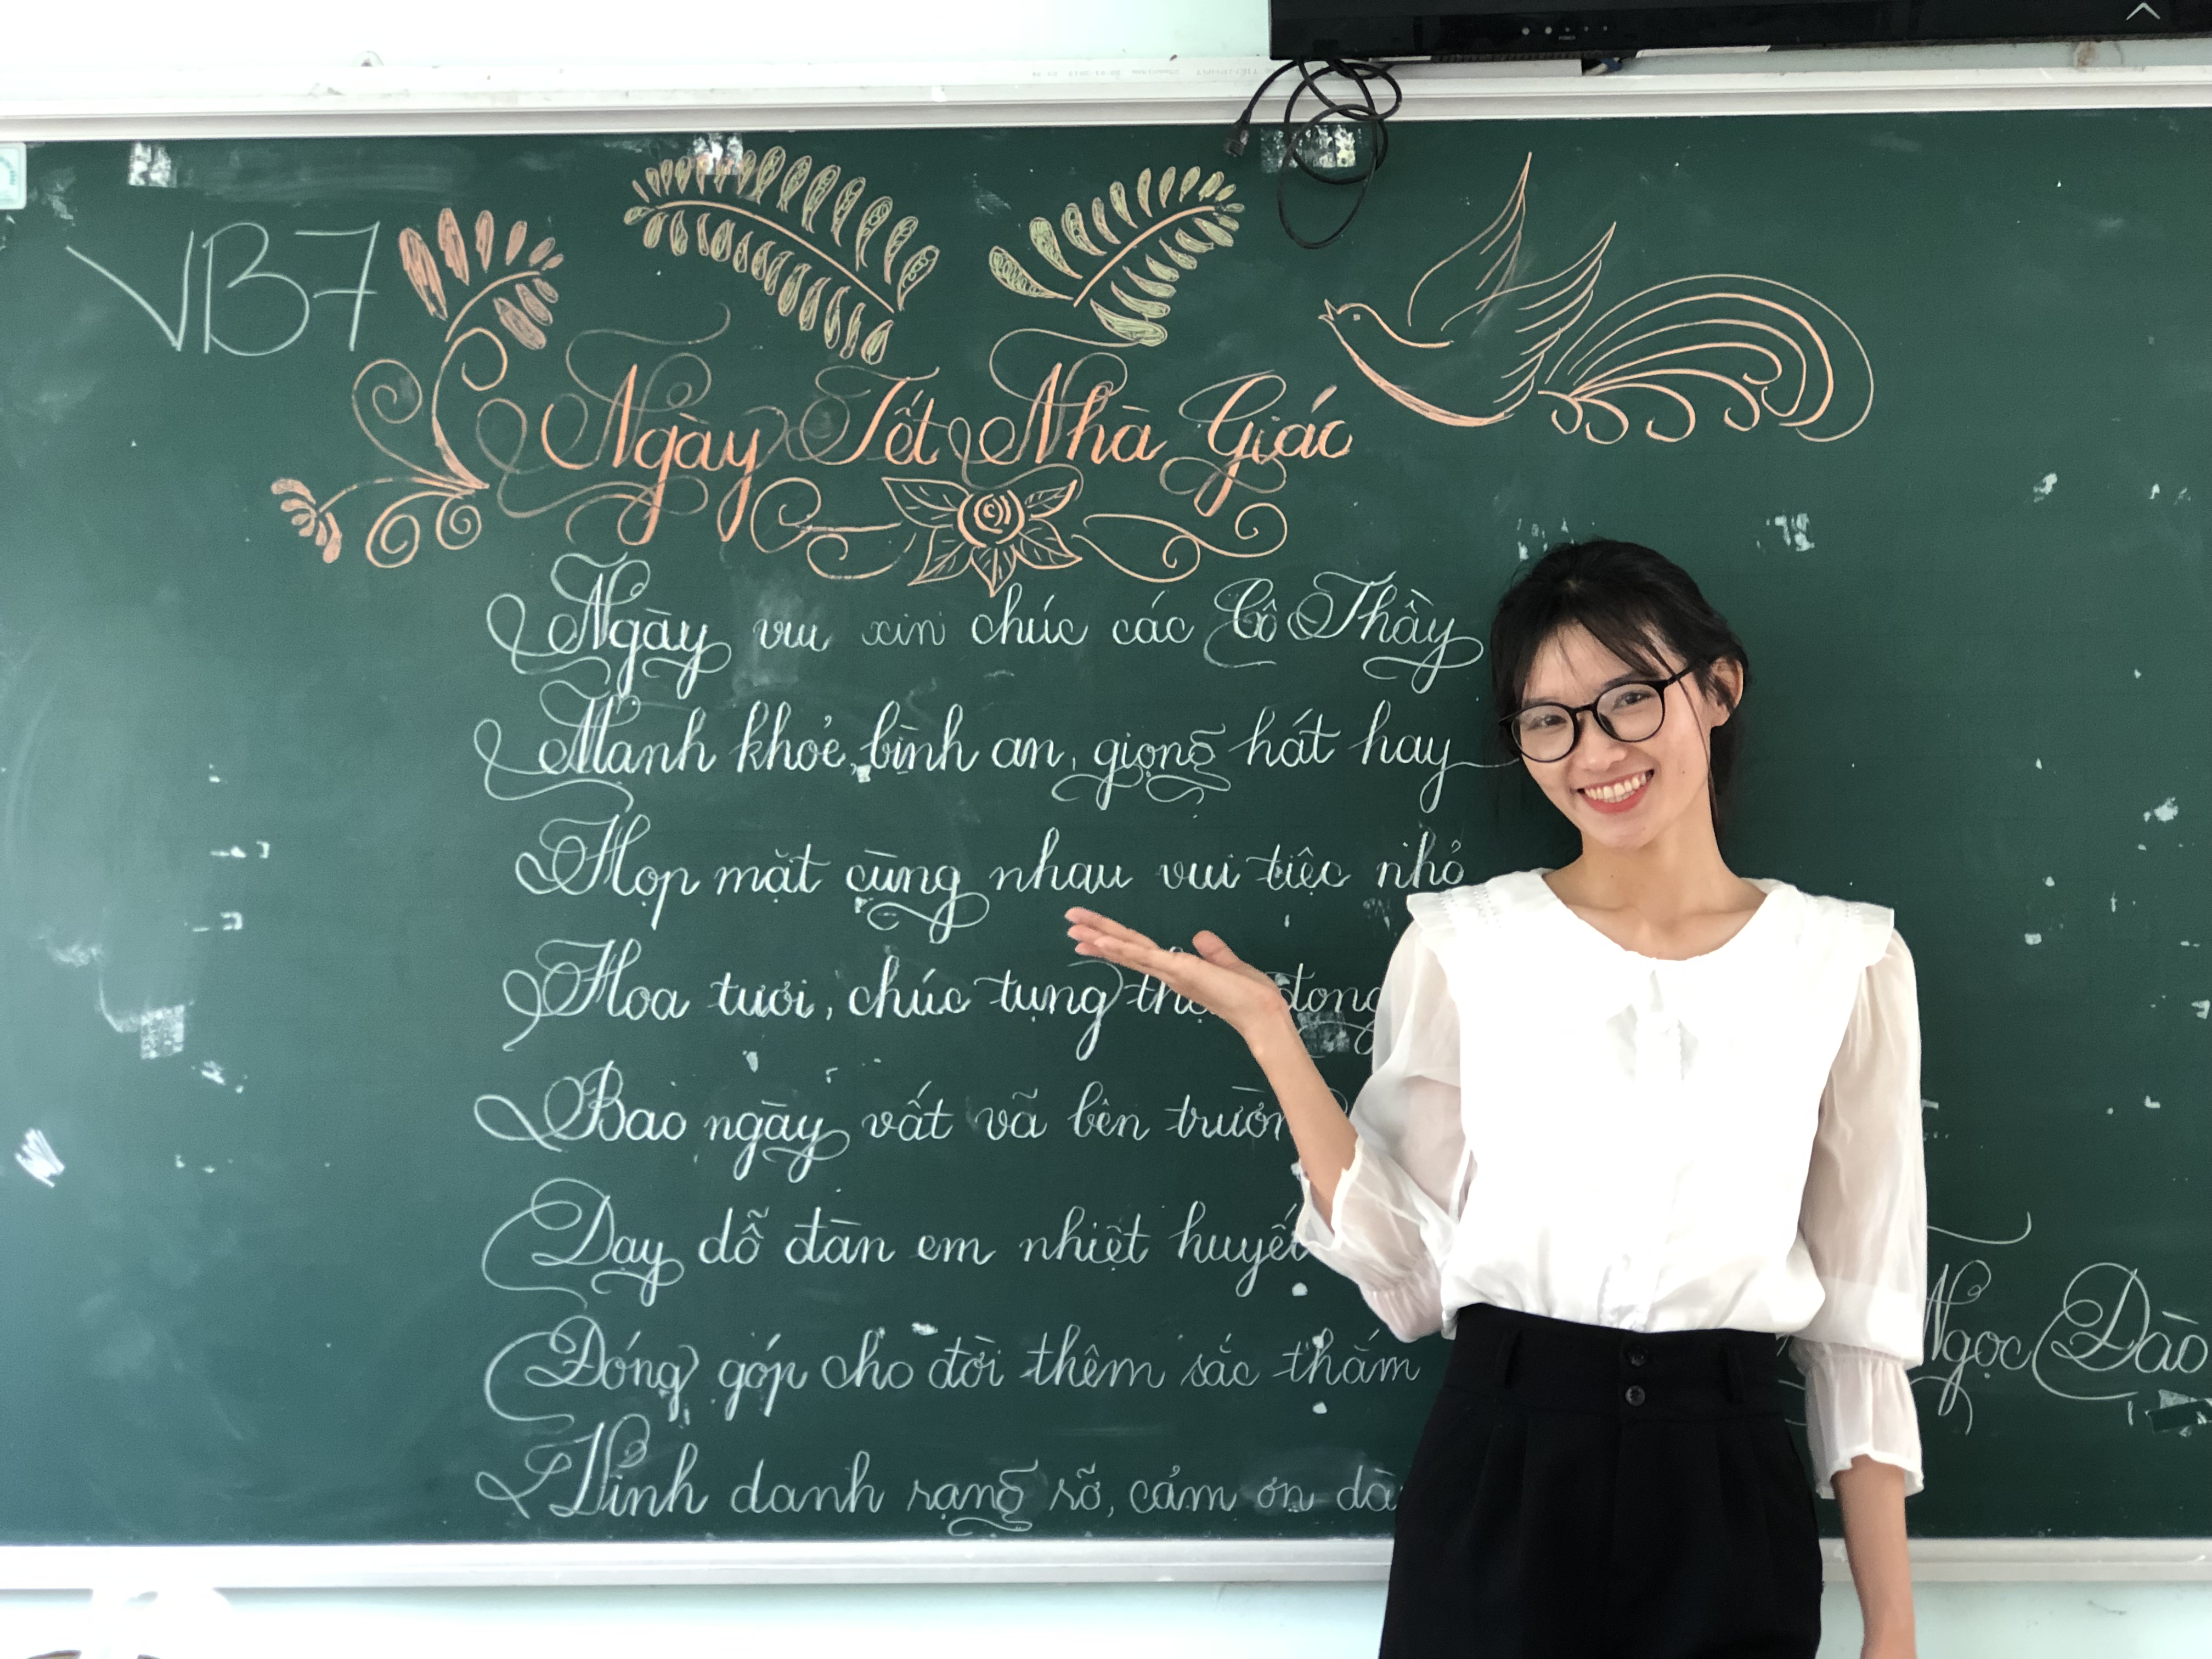 VB7
Ngày Tết Nhà Giáo
Ngày vui xin chúc các Cô Thầy
Mạnh khỏe, bình an, giọng hát hay
Họp mặt cùng nhau vui tiệc nhỏ
Hoa tươi, chúc tụng
Bao ngày vất vã bên
Dạy dỗ đàn em nhiệt huyết
Đóng góp cho đời thêm sắc thắm
Ngọc Đào
Vinh danh rạng rỡ, cảm ơn